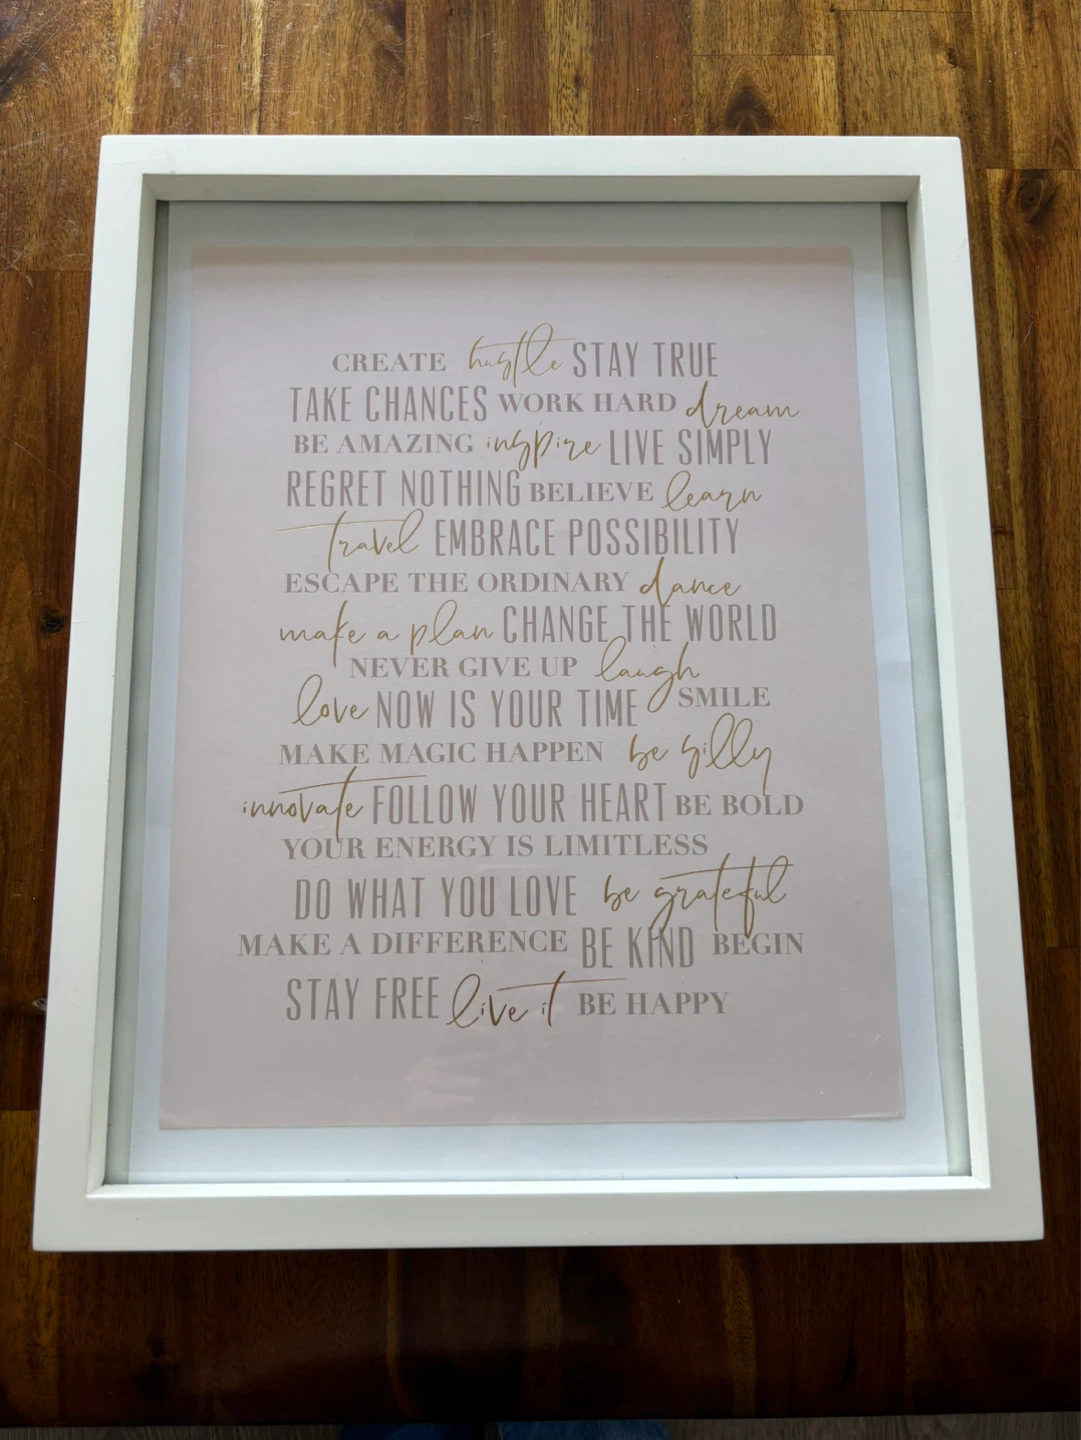 CREATE hustle STAY TRUE
TAKE CHANCES WORK HARD dream
BE AMAZING inspire LIVE SIMPLY
REGRET NOTHING BELIEVE learn
travel EMBRACE POSSIBILITY
ESCAPE THE ORDINARY dance
make a plan CHANGE THE WORLD
NEVER GIVE UP laugh
love NOW IS YOUR TIME SMILE
MAKE MAGIC HAPPEN be silly
innovate FOLLOW YOUR HEART BE BOLD
YOUR ENERGY IS LIMITLESS
DO WHAT YOU LOVE be grateful
MAKE A DIFFERENCE BE KIND BEGIN
STAY FREE live it BE HAPPY